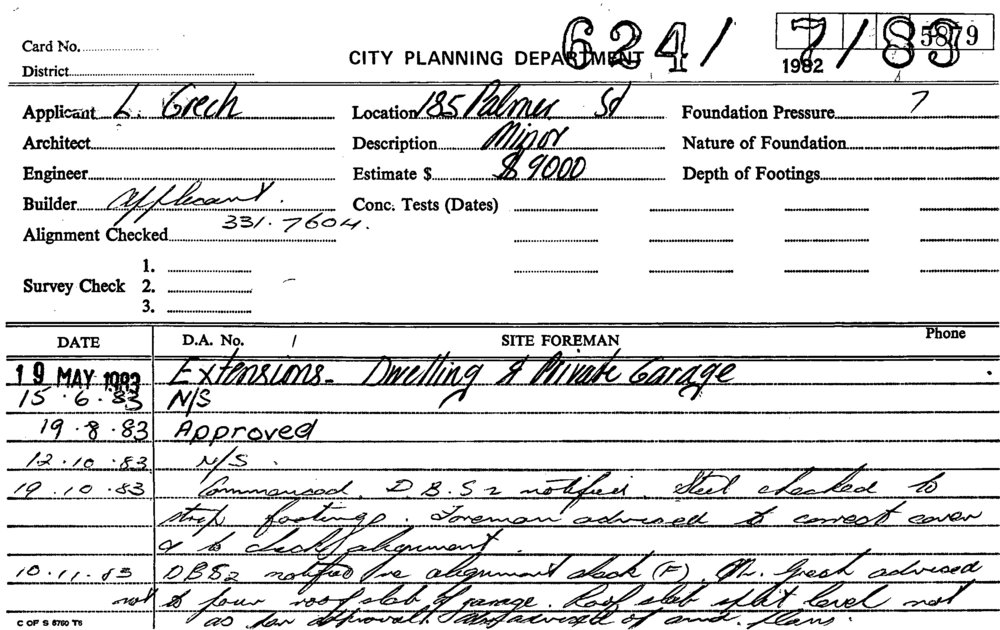 624/ 7/83
5879
Card No.
CITY PLANNING DEPARTMENT
1982
District
Applicant L. Grech
Location 185 Palmer St
Foundation Pressure 7
Architect
Description Minor
Nature of Foundation
Engineer
Estimate $ $9000
Depth of Footings
Builder applicant.
Conc. Tests (Dates)
331.7604.
Alignment Checked
1.
Survey Check 2.
3.
DATE D.A. No. SITE FOREMAN Phone
19 MAY 1983 Extensions - Dwelling & Private Garage
15.6.83 N/S
19.8.83 Approved
12.10.83 N/S.
19.10.83 Commenced. D.B.S2 notified. Steel checked to
strip footings. Foreman advised to correct cover
& to check alignment.
10.11.83 DBS2 notified re alignment check (F). Mr. Grech advised
not to pour roof slab of garage. Roof slab split level not
as per approval. advised of amd. plans.
C OF S 8760 T6